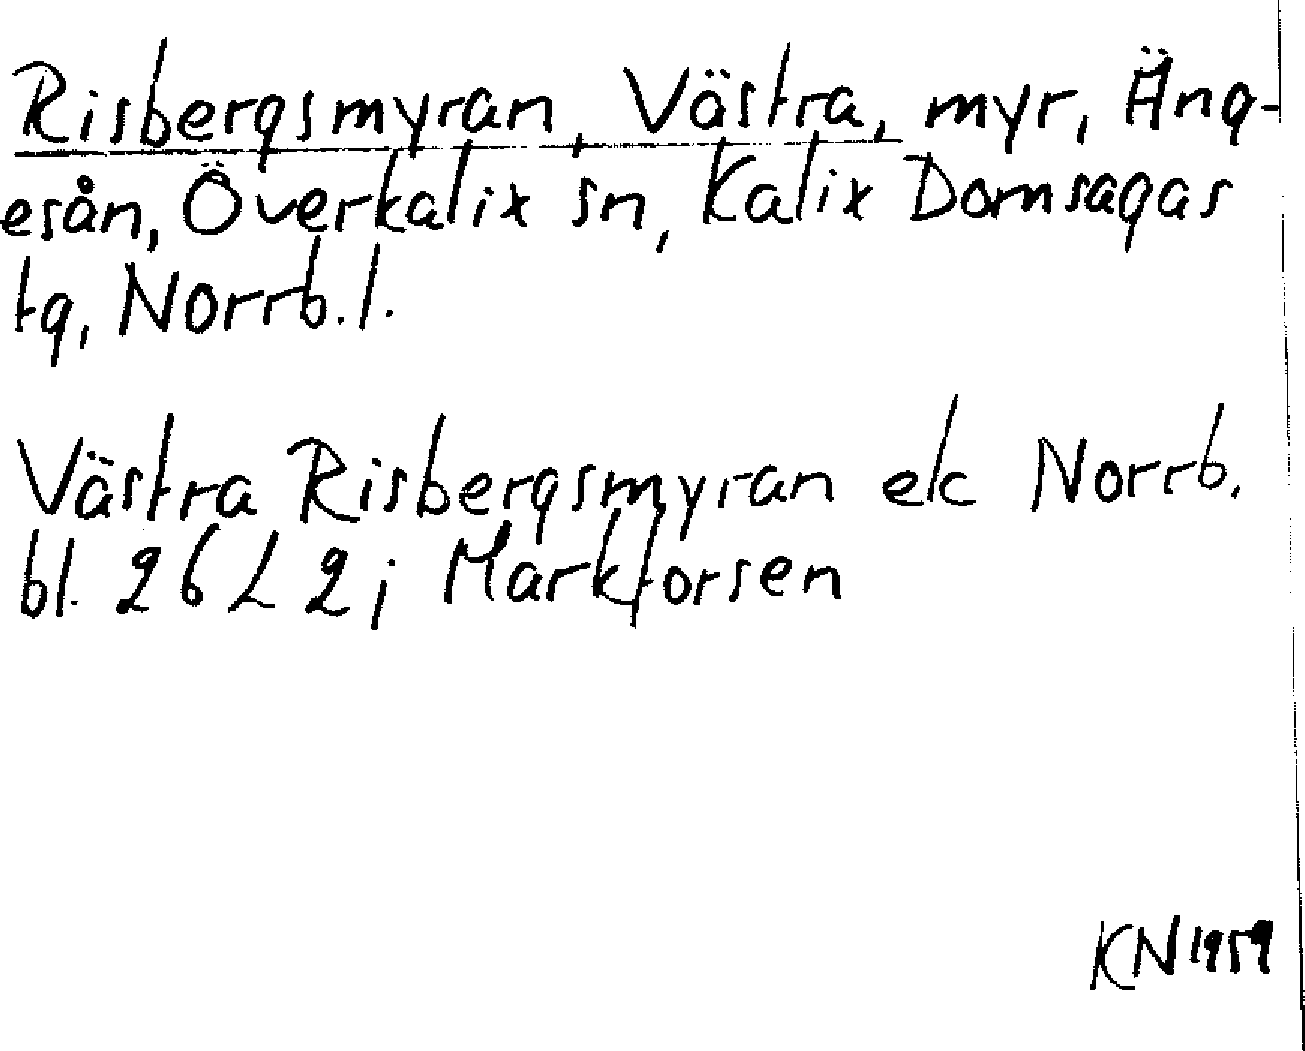 Risbergsmyran, Västra, myr, Äng-
esån, Överkalix sn, Kalix Domsagas
tg, Norrb. l.
Västra Risbergsmyran ek Norrb.
bl. 26 L 2 j Markforsen
KN 1959